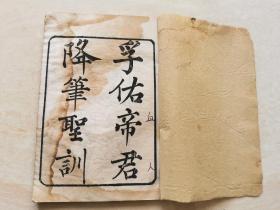 孚佑帝君
降筆聖訓